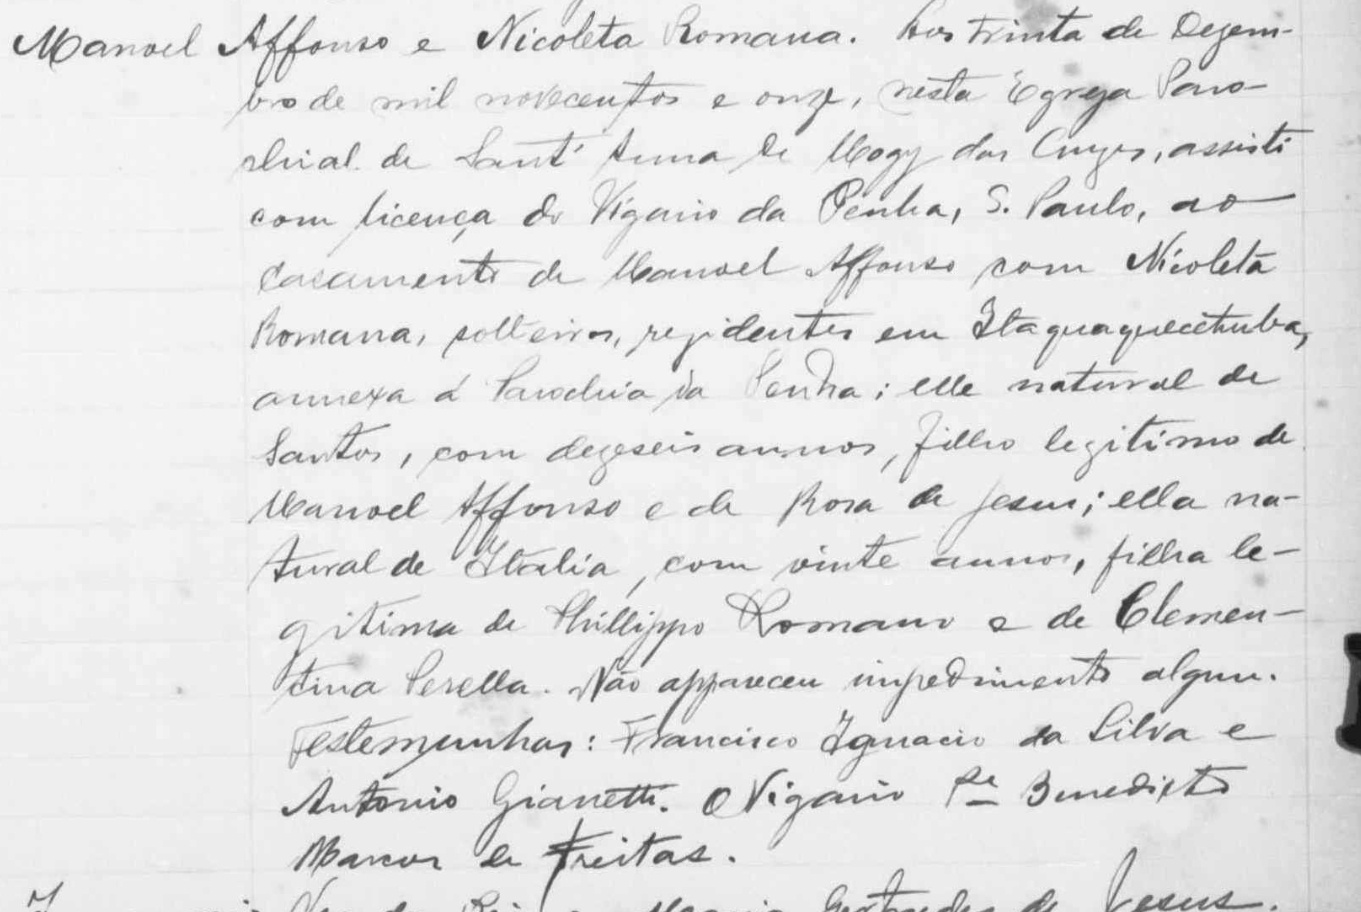 Manoel Affonso e Nicoleta Romana. Aos trinta de Dezem-
bro de mil novecentos e onze, nesta Egreja Paro-
chial de Sant' Anna de Mogy das Cruzes, assisti
com licença do Vigario da Penha, S. Paulo, ao
casamento de Manoel Affonso com Nicoleta
Romana, solteiros, rezidentes em Itaquaquecetuba,
annexa á Parochia da Penha; elle natural de
Santos, com dezeseis annos, filho legitimo de
Manoel Affonso e de Rosa de Jesus; ella na-
tural de Italia, com vinte annos, filha le-
gitima de Phillippo Romano e de Clemen-
tina Perella. Não appareceu impedimento algum.
Testemunhas: Francisco Ignacio da Silva e
Antonio Gianetti. O Vigario Pe Benedicto
Marcos de Freitas.
de Jesus.